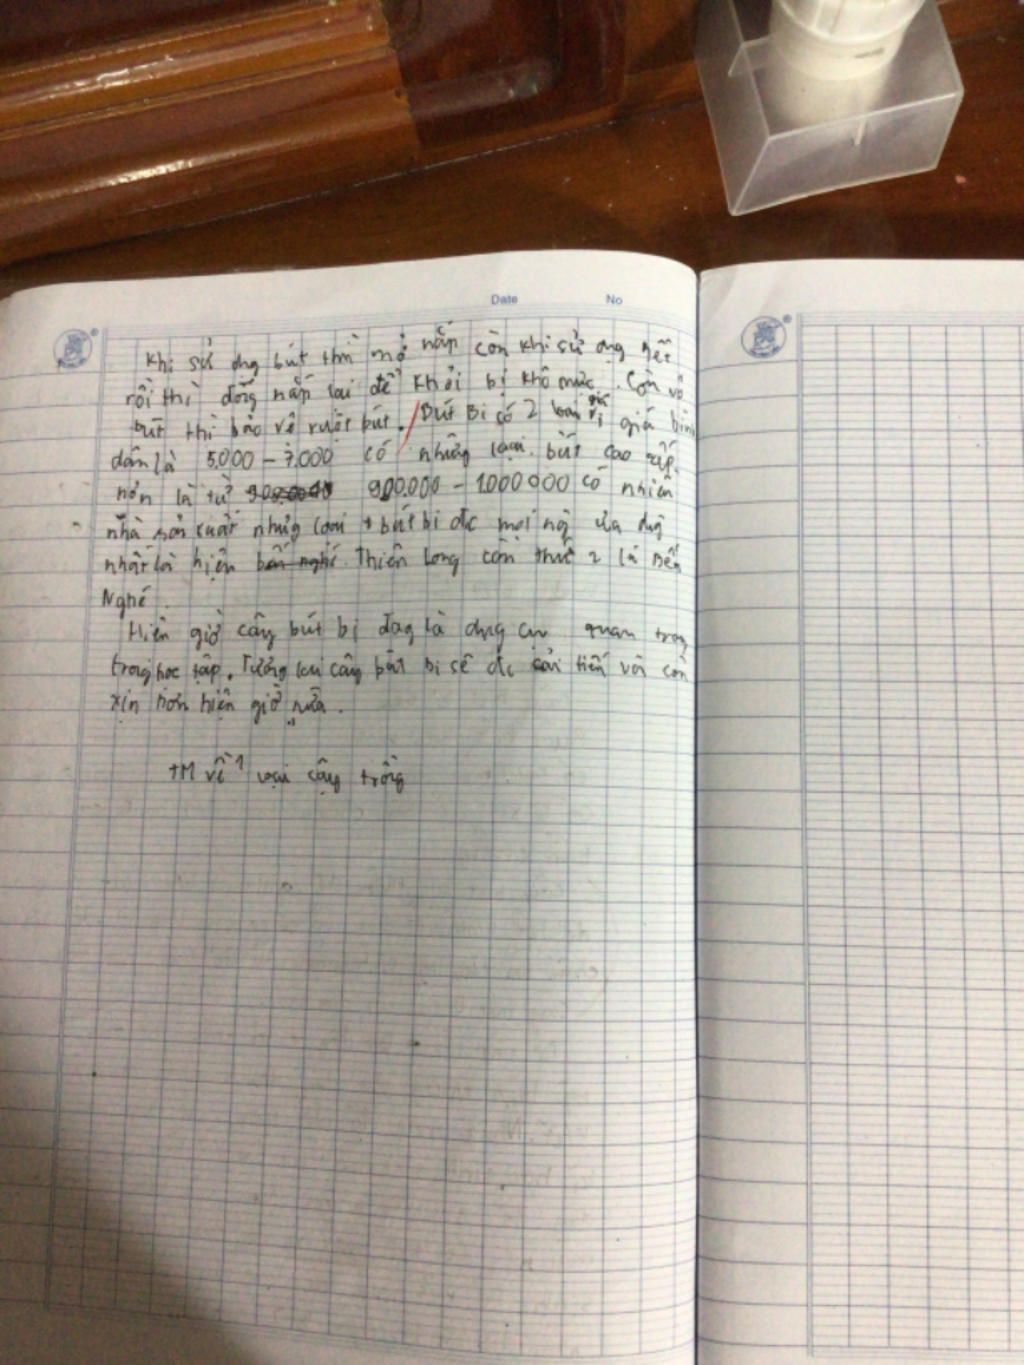 Date No
Khi sử dng bút thì mở nắp còn khi sử dng hết
rồi thì đóng nắp lại để khỏi bị khô mực. Còn vỏ
bút thì bảo vệ ruột bút. Bút Bi có 2 loại giá bình
dân là 5.000 - 7.000 có những loại bút cao cấp
hơn là từ 900.000 - 1.000 000 có nhiều
nhà sản xuất những loại bút bi đc mọi ng ưa
nhất là hiện Thiên Long còn thứ 2 là Bến
Nghé.
Hiện giờ cây bút bi đag là dụng cụ quan trọng
trong học tập. Tương lai cây bút bi sẽ đc cải tiến và còn
xịn hơn hiện giờ nữa.
TM về 1 loại cây trồng